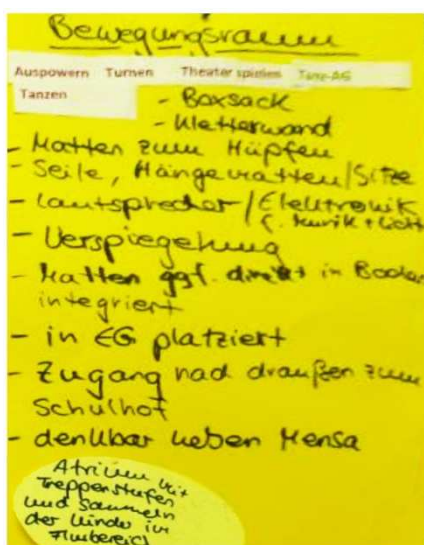 Bewegungsraum
Auspowern Turnen Theater spielen Tanz-AG
Tanzen
- Boxsack
- Kletterwand
- Matten zum Hüpfen
- Seile, Hängematten/Sitze
- Lautsprecher/Elektronik
f. Musik + Licht
- Verspiegelung
- Matten ggf. direkt in Boden
integriert
- in EG platziert
- Zugang nach draußen zum
Schulhof
- denkbar neben Mensa
Atrium mit
Treppenstufen
und Sammeln
der Kinder im
Flurbereich